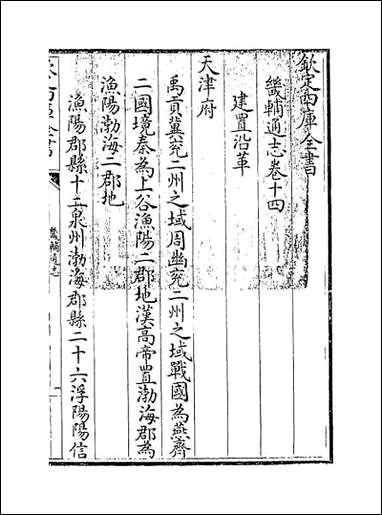 欽定四庫全書
畿輔通志卷十四
建置沿革
天津府
禹貢冀兗二州之域周幽兗二州之域戰國為燕齊
二國境秦為上谷漁陽二郡地漢高帝置渤海郡為
漁陽渤海二郡地
漁陽郡縣十二泉州渤海郡縣二十六浮陽陽信
欽定四庫全書
畿輔通志